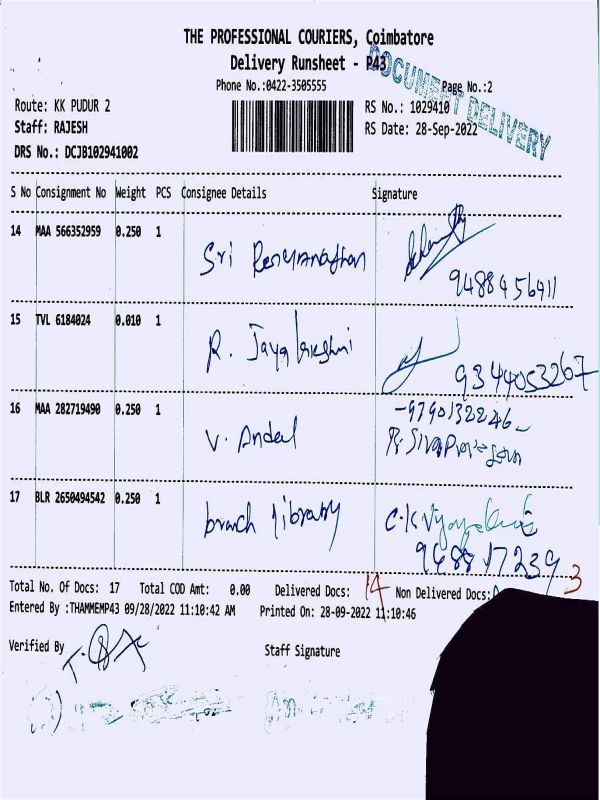 THE PROFESSIONAL COURIERS, Coimbatore
Delivery Runsheet - P43
DOCUMENT DELIVERY
Phone No.:0422-3505555
Page No.:2
Route: KK PUDUR 2
RS No.: 1029410
Staff: RAJESH
RS Date: 28-Sep-2022
DRS No.: DCJB102941002
S No Consignment No Weight PCS Consignee Details Signature
14 MAA 566352959 0.250 1
Sri
15 TVL 6184024 0.010 1
R. Jayalakshmi
9344053267
16 MAA 282719490 0.250 1
-9790132246-
V. Andal
17 BLR 2650494542 0.250 1
branch library
Total No. Of Docs: 17 Total COD Amt: 0.00 Delivered Docs: 14 Non Delivered Docs: 3
Entered By :THAMMEMP43 09/28/2022 11:10:42 AM Printed On: 28-09-2022 11:10:46
Verified By
Staff Signature